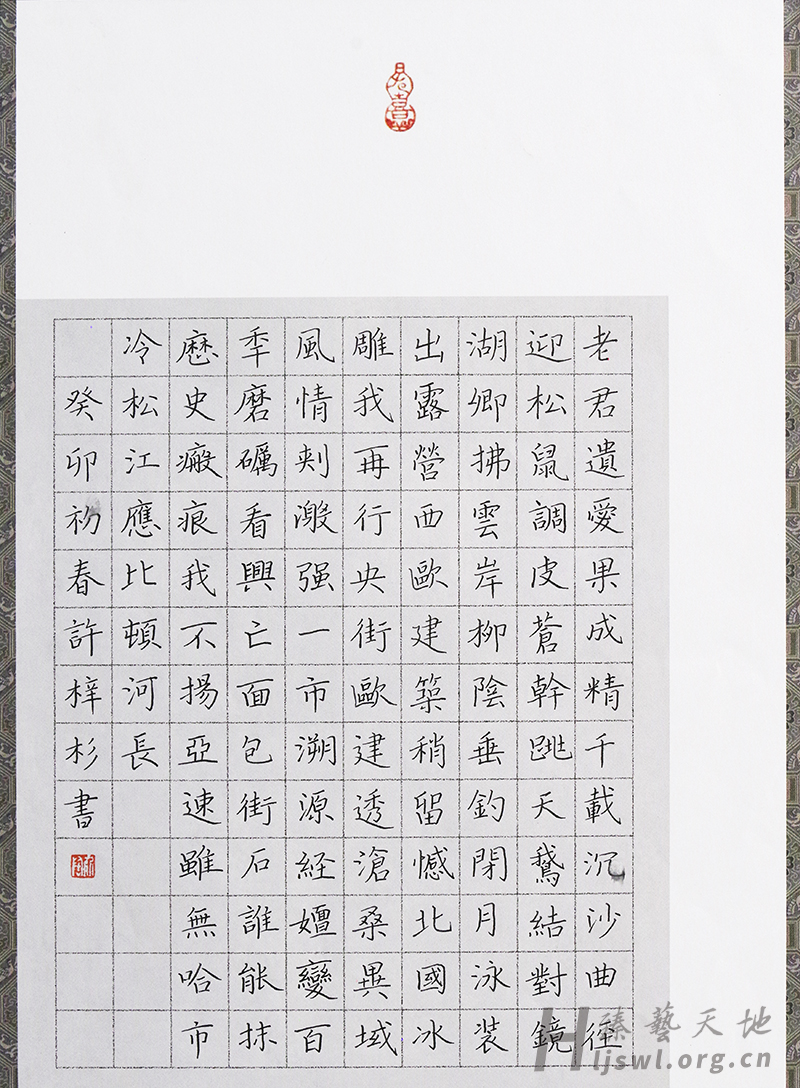 老君遺愛果成精千載沉沙曲徑
迎松鼠調皮蒼幹跳天鵝結對鏡
湖卿拂雲岸柳陰垂釣閉月泳裝
出露營西歐建築稍留憾北國冰
雕我再行央街歐建透滄桑異域
風情刺激强一市溯源経嬗變百
秊磨礪看興亡面包街石誰能抹
歷史瘢痕我不揚亞速雖無哈市
冷松江應比頓河長
癸卯初春許梓杉書
臻藝天地
Hljswl.org.cn